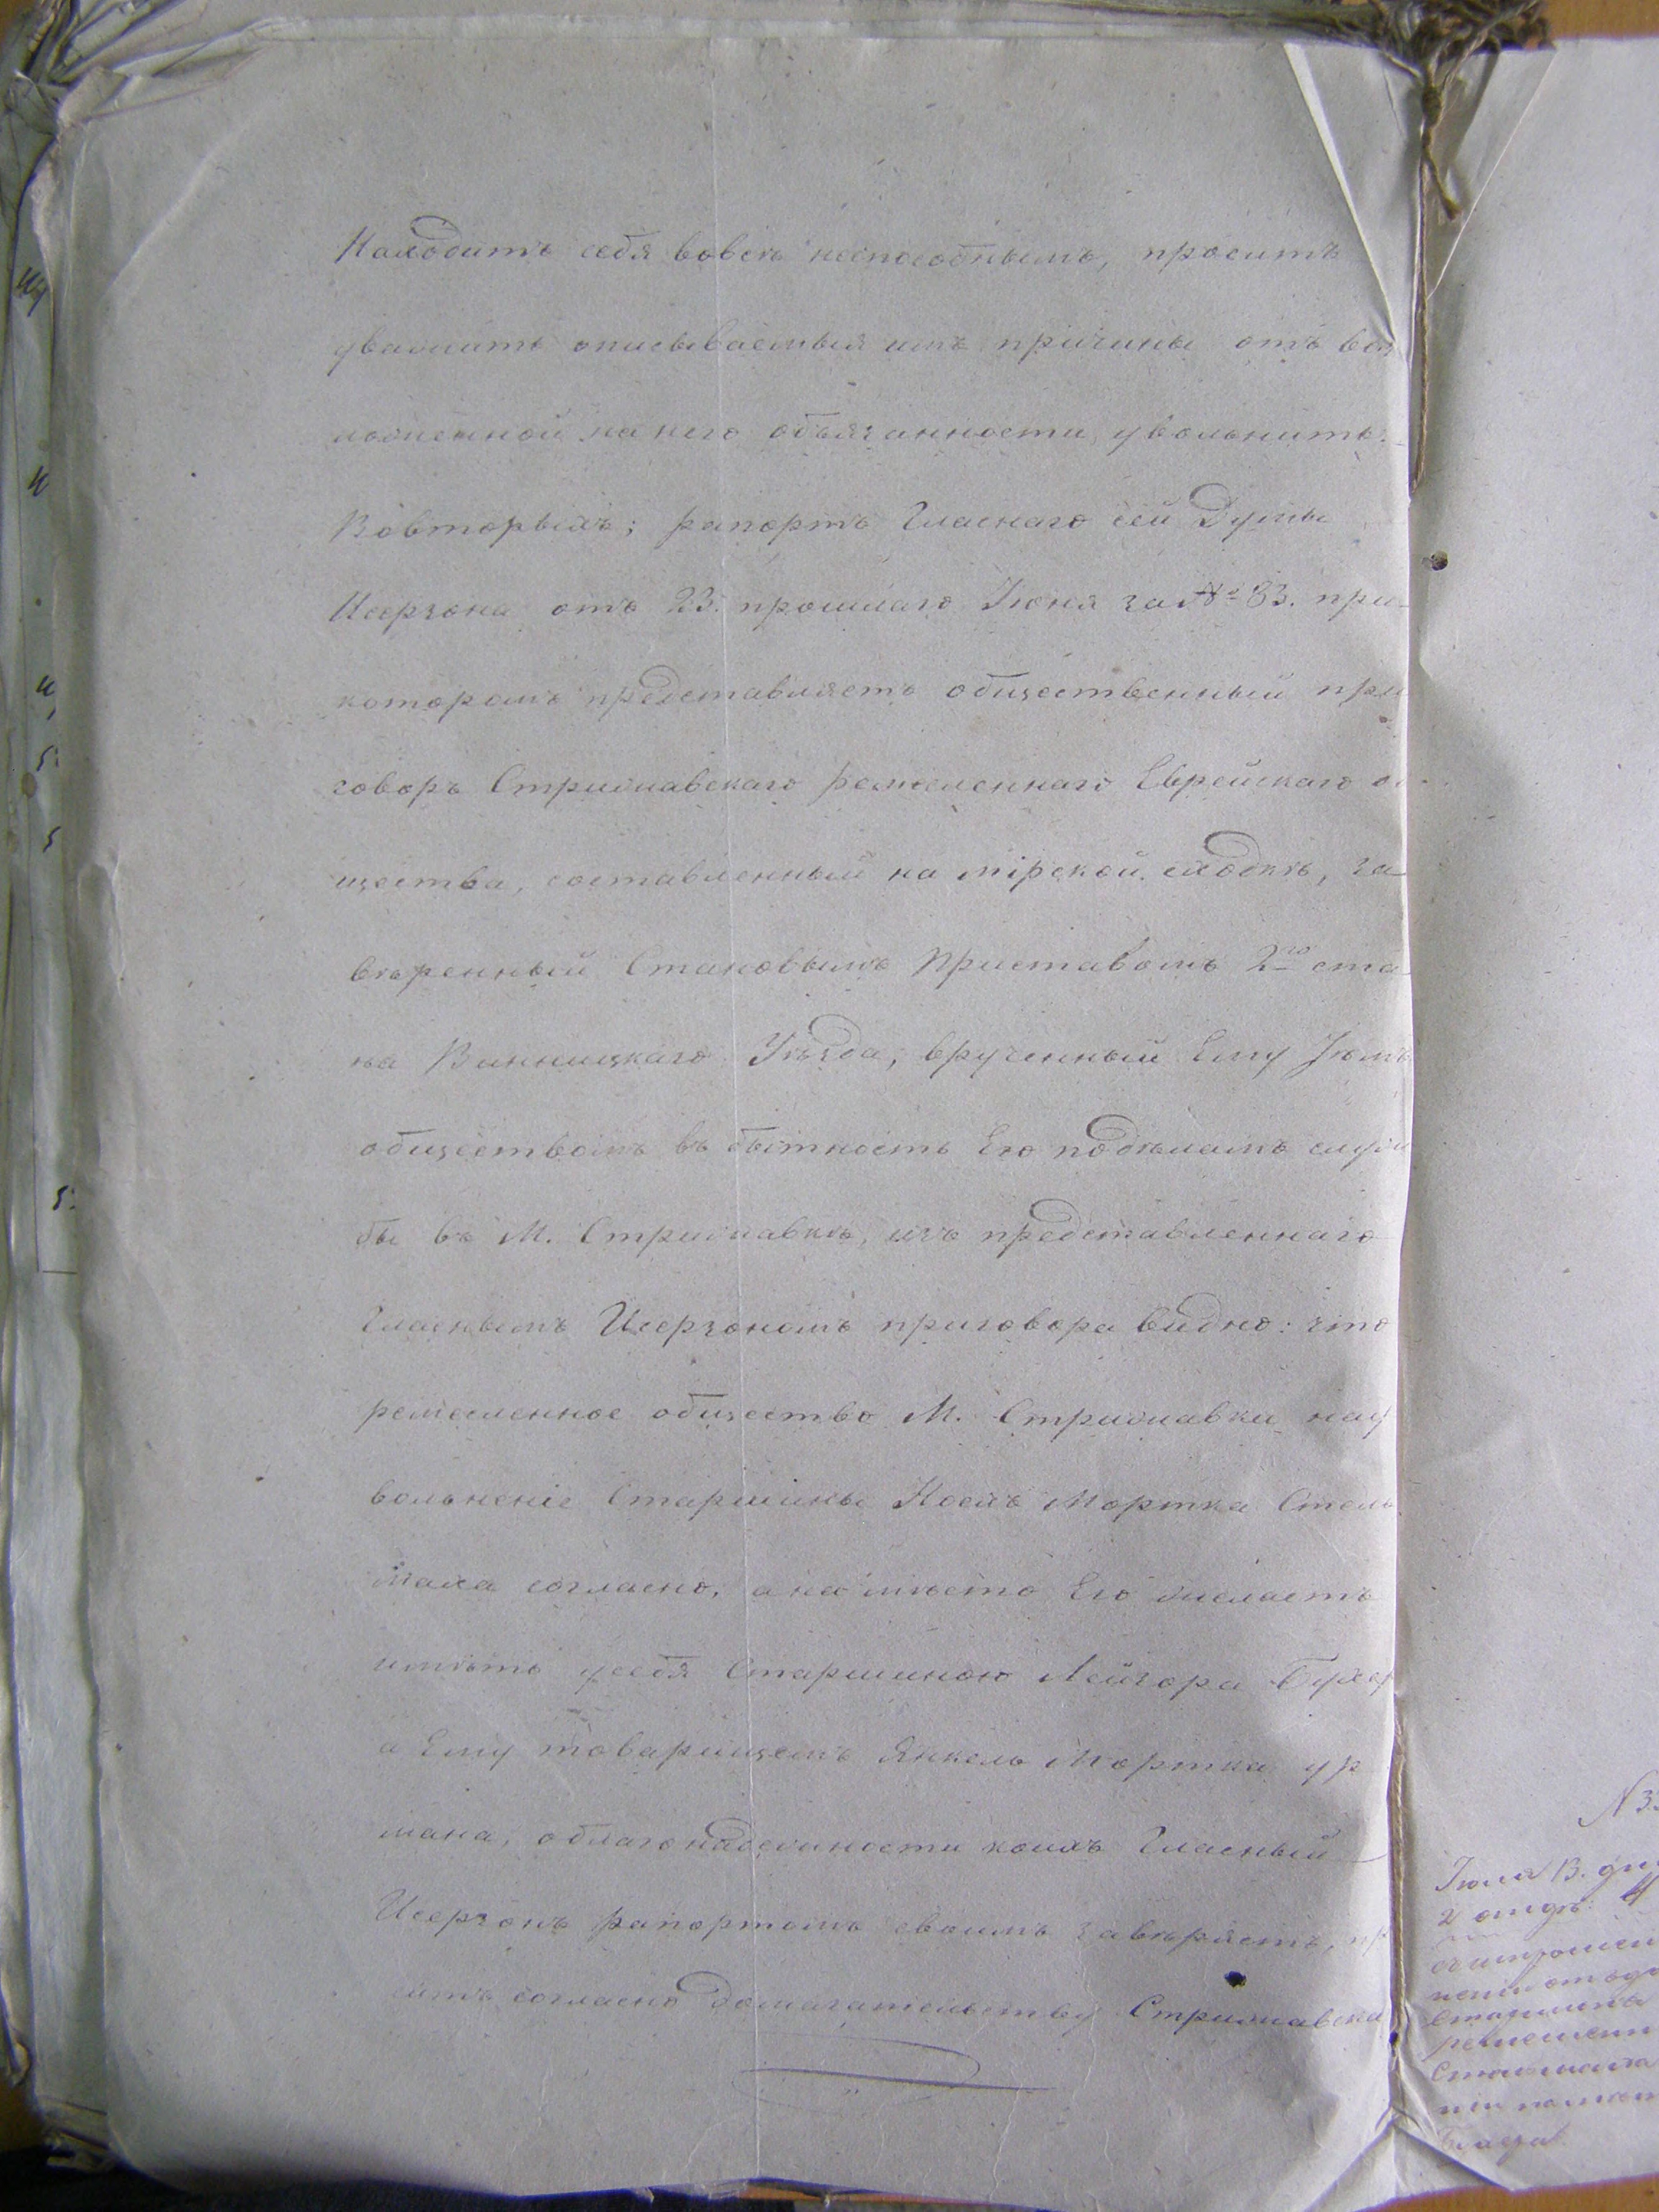 Находитъ себя вовсѣ неспособнымъ, проситъ
уважить описываемыя имъ причины отъ воз
ложенной на него обязанности увольнить.
Вовторыхъ; рапортъ Гласнаго сей Думы
Исерзона отъ 23. прошлаго Іюня за № 83. при
которомъ представляетъ общественный при
говоръ Стрижавскаго ремесленнаго Еврейскаго об
щества, составленный на мірской сходкѣ, за
вѣренный Становымъ Приставомъ 2го ста
на Винницкаго Уѣзда, врученный Ему
обществомъ въ бытность Его подѣламъ служ
бы въ М. Стрижавкѣ, изъ представленнаго
Гласнымъ Исерзономъ приговора видно: что
ремесленное общество М. Стрижавки нау
вольненіе Старшины Мортка Стель
маха согласно, а на мѣсто Его желаетъ
имѣть у себя Старшиною Лейзора
а Ему товарищемъ Янкель Мортка
мана, облагонадежности коихъ Гласный
Исерзонъ рапортомъ своимъ завѣряетъ, пр
ситъ согласно домагательству Стрижавска
Іюля 13. дня
2 отдѣ: